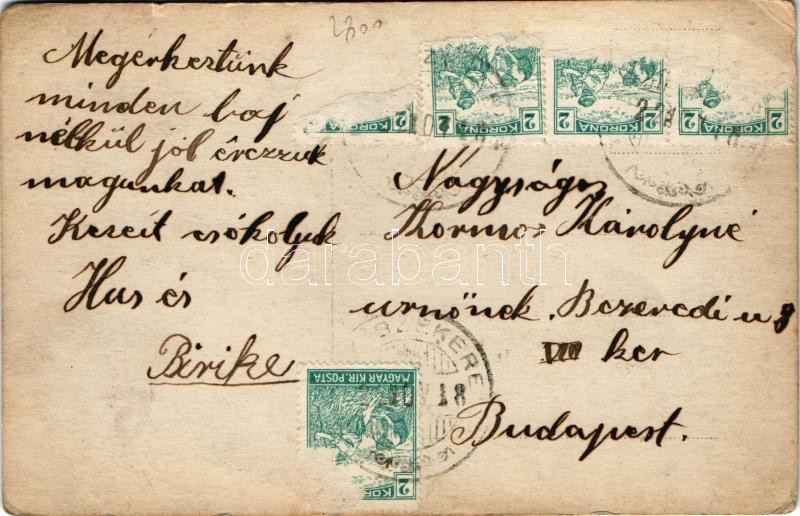 2800
Megérkeztünk
minden baj
nélkül jól érezzük
magunkat.
Kezeit csókolyuk
Hus és
Birike
2 KORONA
KORONA 2
KORONA 2
KORONA 2
Nagyságos
Kormos Károlyné
urnönek. Bezeredi u 8
VIII ker
Budapest.
MAGYAR KIR. POSTA
KORONA 2
darabanth